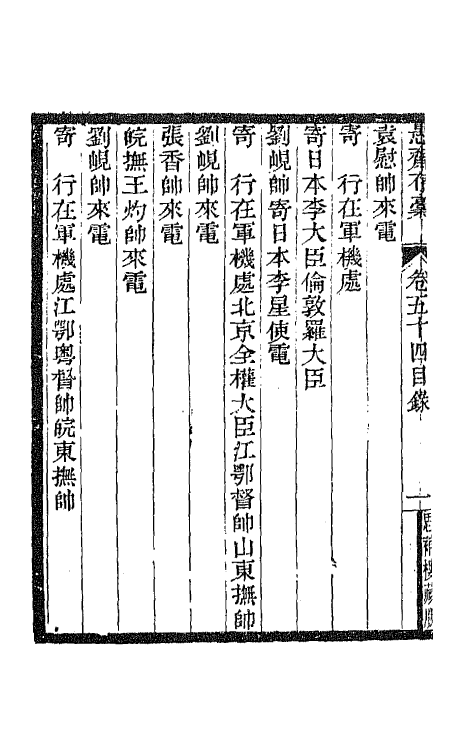 愚齋存藁 卷五十四目錄 一 思補樓藏版
袁慰帥來電
寄 行在軍機處
寄日本李大臣倫敦羅大臣
劉峴帥寄日本李星使電
寄 行在軍機處北京全權大臣江鄂督帥山東撫帥
劉峴帥來電
張香帥來電
皖撫王灼帥來電
劉峴帥來電
寄 行在軍機處江鄂粵督帥皖東撫帥